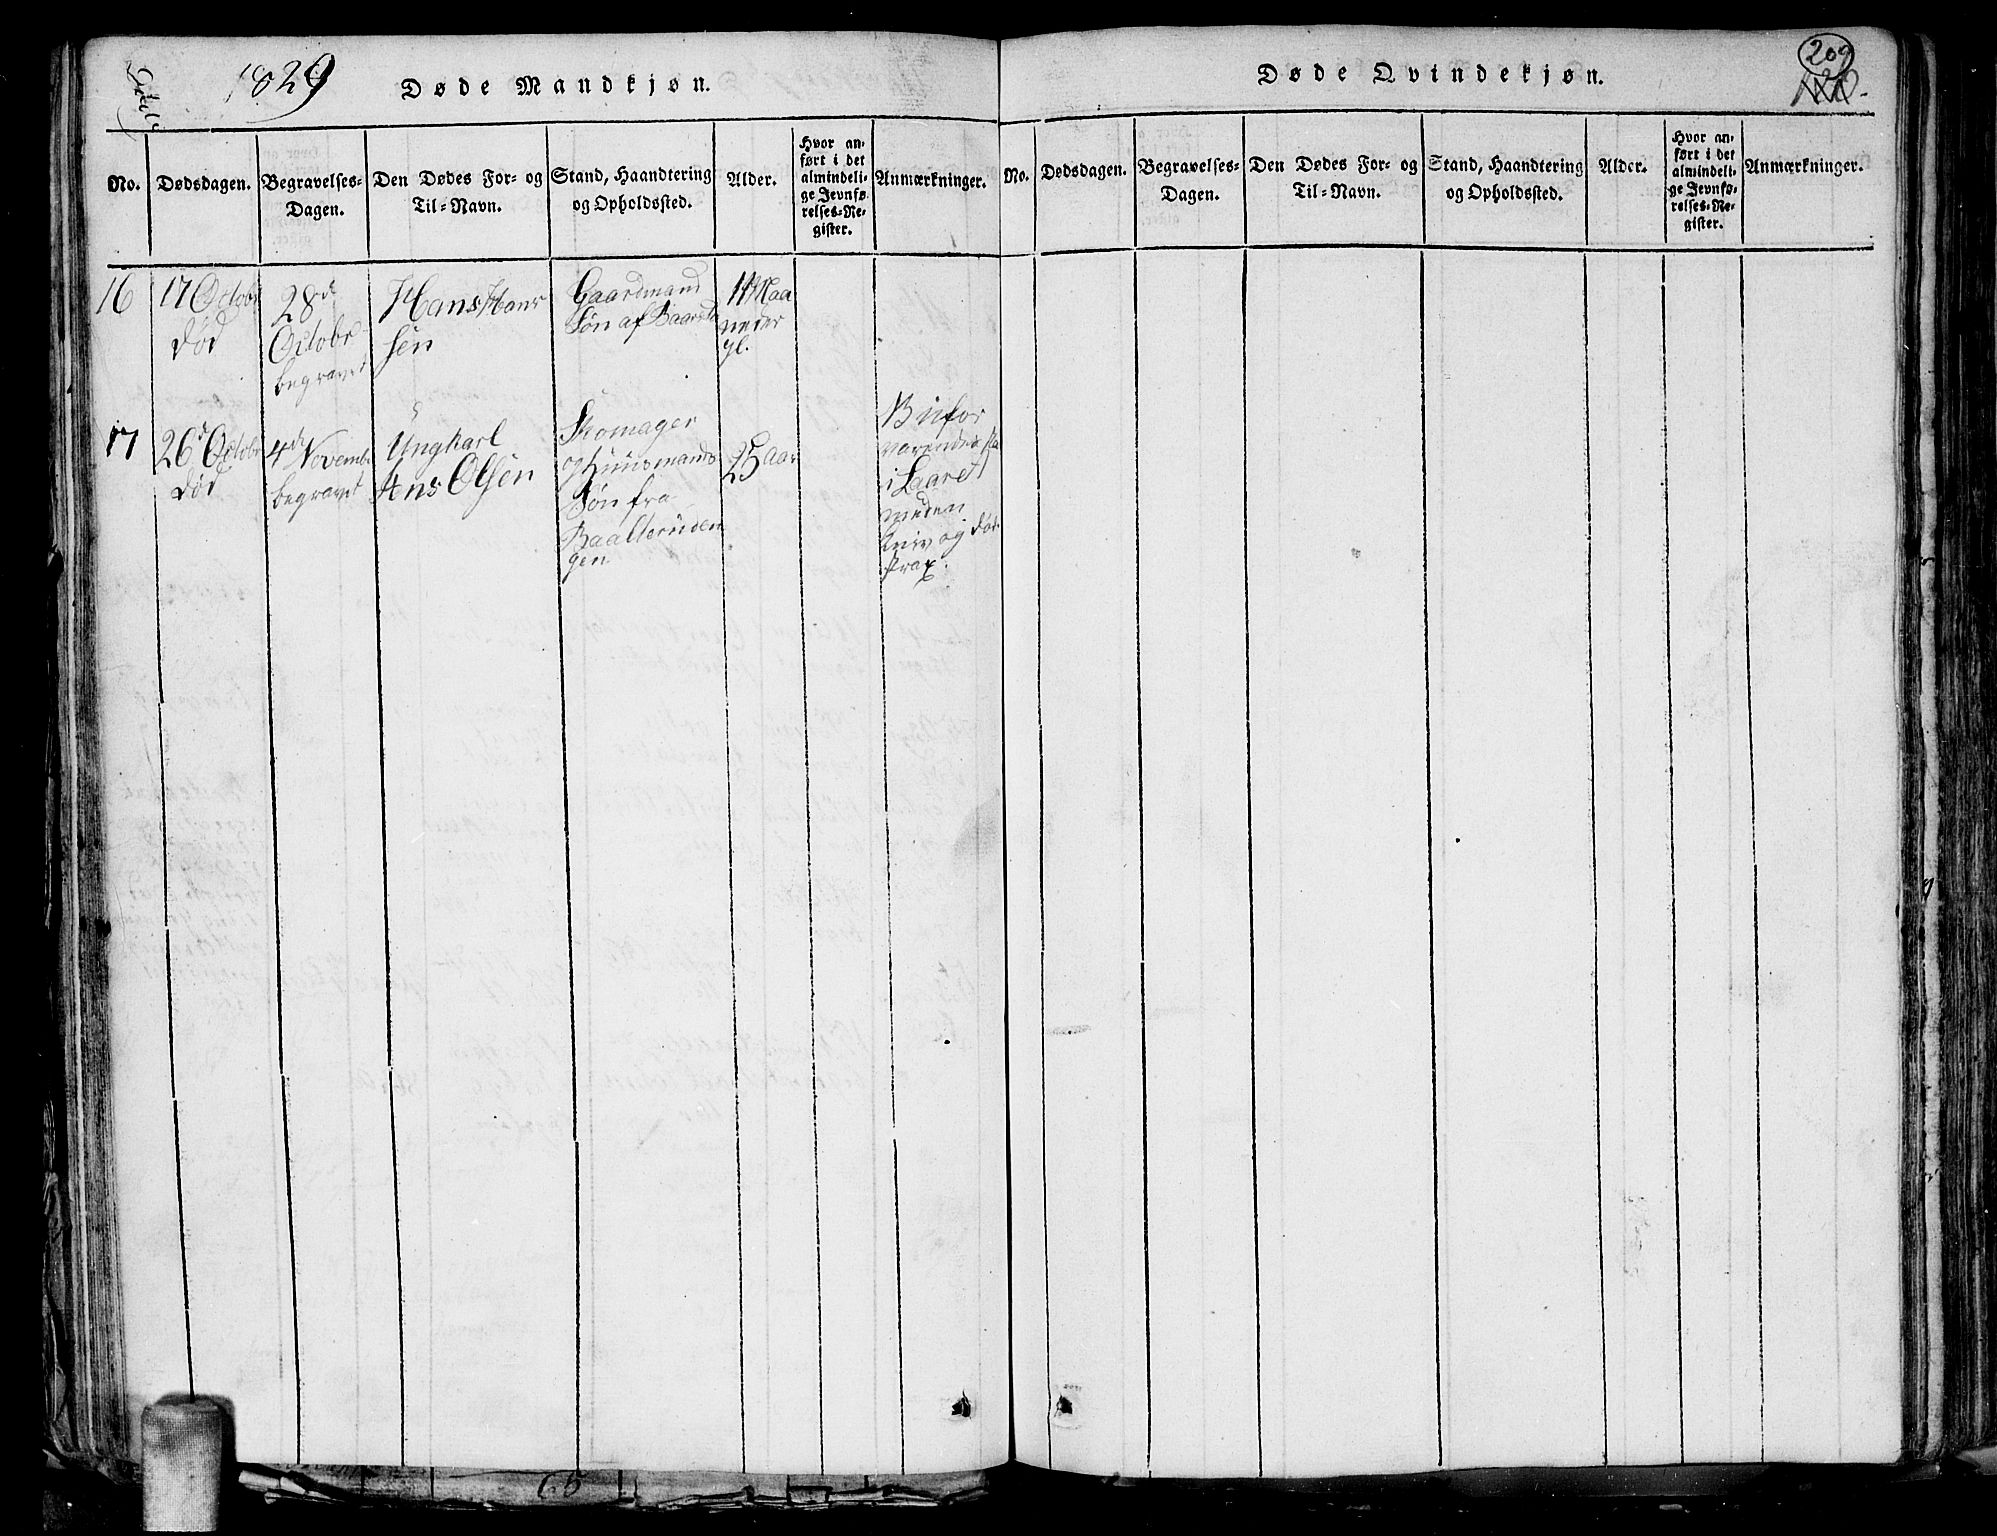 1829
Døde Mandkjøn.
No.
Dødsdagen.
Begravelses-
Dagen.
Den Dødes For- og
Til-Navn.
Stand, Haandtering
og Opholdssted.
Alder.
Hvor an-
ført i det
almindeli-
ge Jevnfø-
relses-Re-
gister.
Anmærkninger.
16
17 Octobr
død
28d
Octobr
begravet
Hans Hans
sen
Gaardmand
Søn af Baarsta
11 Maa
neder
gl.
17
26d Octobr
død
4de Novembr
begravet
Ungkarl
Jens Olsen
Skomager
og Huusmands
Søn fra
Baalterud en
gen
25 aar
i Laaret
meden
kniv og døde
strax.
209
Døde Qvindekjøn.
No.
Dødsdagen.
Begravelses-
Dagen.
Den Dødes For- og
Til-Navn.
Stand, Haandtering
og Opholdssted.
Alder.
Hvor an-
ført i det
almindeli-
ge Jevnfø-
relses-Re-
gister.
Anmærkninger.